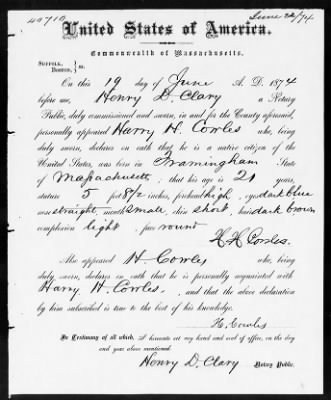 40710
June 22/74
United States of America.
Commonwealth of Massachusetts.
Suffolk,
Boston, } ss.
On this 19 day of June A. D. 1874
before me, Henry D. Clary a Notary
Public, duly commissioned and sworn, in and for the County aforesaid,
personally appeared Harry H. Cowles who, being
duly sworn, declares on oath that he is a native citizen of the
United States, was born in Framingham State
of Massachusetts, that his age is 21 years,
stature 5 feet 8 1/2 inches, forehead high, eyes dark blue
nose straight, mouth small chin short, hair dark brown
complexion light, face round
H. H. Cowles.
Also appeared H. Cowles who, being
duly sworn, declares on oath that he is personally acquainted with
Harry H. Cowles, and that the above declaration
by him subscribed is true to the best of his knowledge.
H. Cowles
In Testimony of all which, I hereunto set my hand and seal of office, on the day
and year above mentioned.
Henry D. Clary Notary Public.